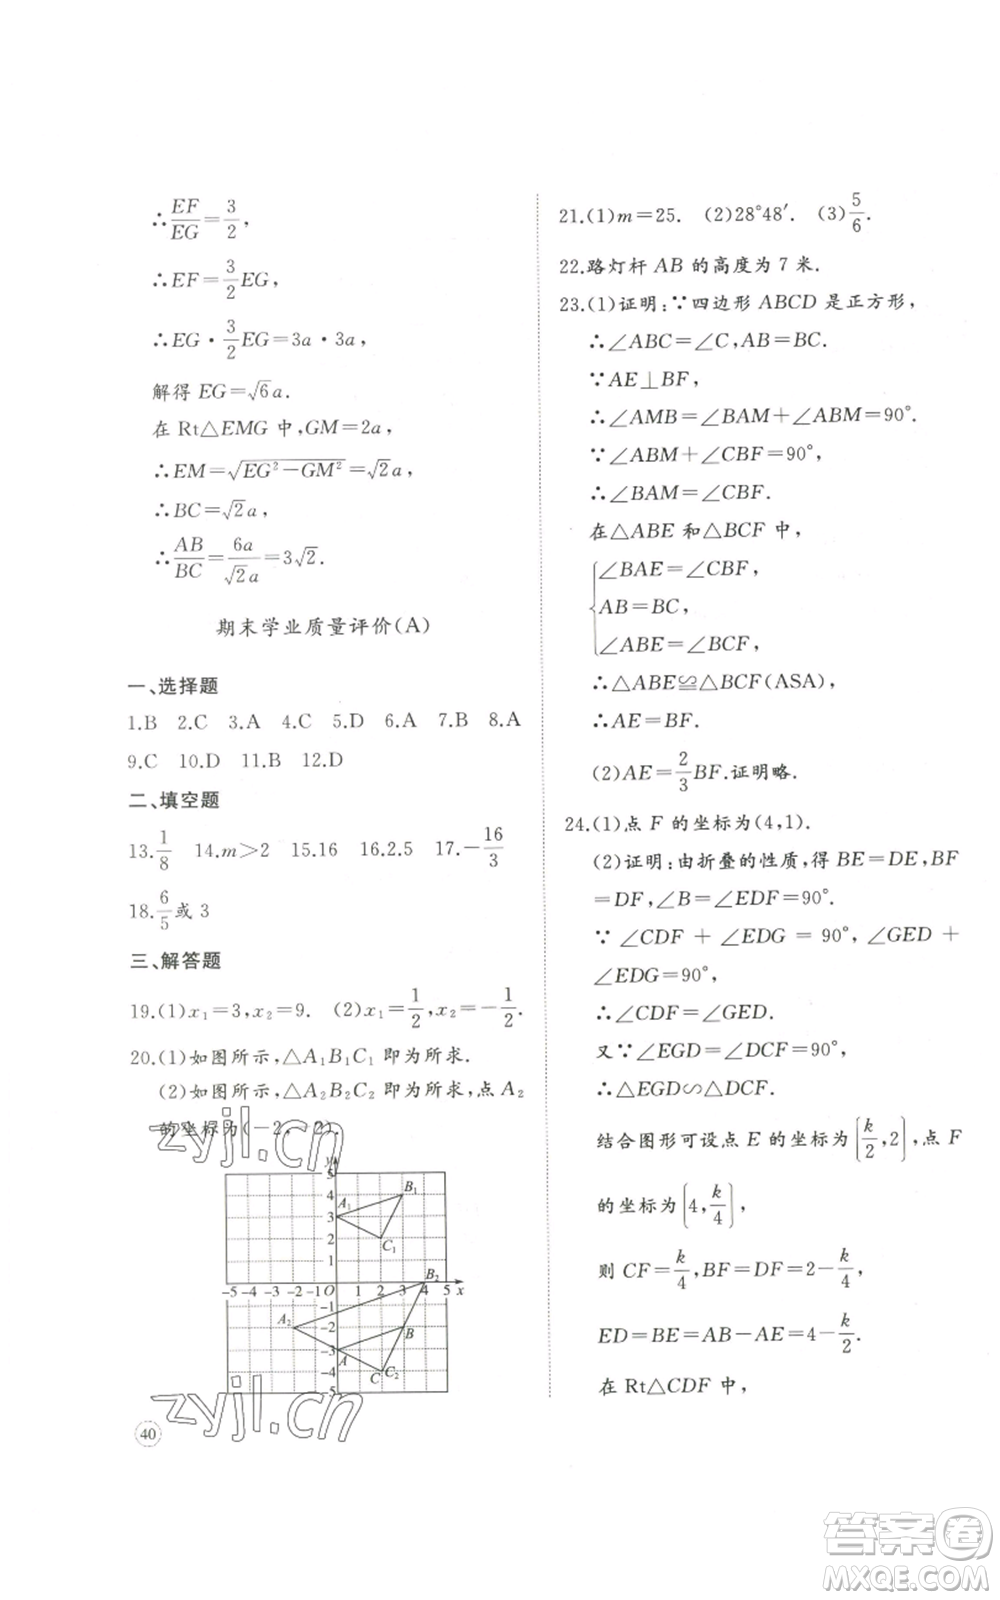 ∴EF/EG=3/2,
∴EF=3/2EG,
∴EG·3/2EG=3a·3a,
解得 EG=√6a.
在 Rt△EMG 中,GM=2a,
∴EM=√(EG²-GM²)=√2a,
∴BC=√2a,
∴AB/BC=6a/√2a=3√2.
期末学业质量评价(A)
一、选择题
1.B 2.C 3.A 4.C 5.D 6.A 7.B 8.A
9.C 10.D 11.B 12.D
二、填空题
13.1/8 14.m>2 15.16 16.2.5 17.-16/3
18.6/5或 3
三、解答题
19.(1)x₁=3,x₂=9. (2)x₁=1/2,x₂=-1/2.
20.(1)如图所示,△A₁B₁C₁ 即为所求.
(2)如图所示,△A₂B₂C₂ 即为所求,点 A₂
的坐标为(-2,-2).
zyjl.cn
y
5
4
3
2
1
A₁
B₁
C₁
-5 -4 -3 -2 -1 O 1 2 3 4 5 x
B₂
-1
-2
-3
-4
5
A₂
B
A
C
C₂
zyjl.cn
40
21.(1)m=25. (2)28°48′. (3)5/6.
22.路灯杆 AB 的高度为 7 米.
23.(1)证明:∵四边形 ABCD 是正方形,
∴∠ABC=∠C,AB=BC.
∵AE⊥BF,
∴∠AMB=∠BAM+∠ABM=90°.
∵∠ABM+∠CBF=90°,
∴∠BAM=∠CBF.
在△ABE 和△BCF 中,
∠BAE=∠CBF,
AB=BC,
∠ABE=∠BCF,
∴△ABE≌△BCF(ASA),
∴AE=BF.
(2)AE=2/3BF.证明略.
24.(1)点 F 的坐标为(4,1).
(2)证明:由折叠的性质,得 BE=DE,BF
=DF,∠B=∠EDF=90°.
∵ ∠CDF + ∠EDG = 90°,∠GED +
∠EDG=90°,
∴∠CDF=∠GED.
又∵∠EGD=∠DCF=90°,
∴△EGD∽△DCF.
结合图形可设点 E 的坐标为(k/2,2),点 F
的坐标为(4,k/4),
则 CF=k/4,BF=DF=2-k/4,
ED=BE=AB-AE=4-k/2.
在 Rt△CDF 中,
答案圈
MXQE.COM